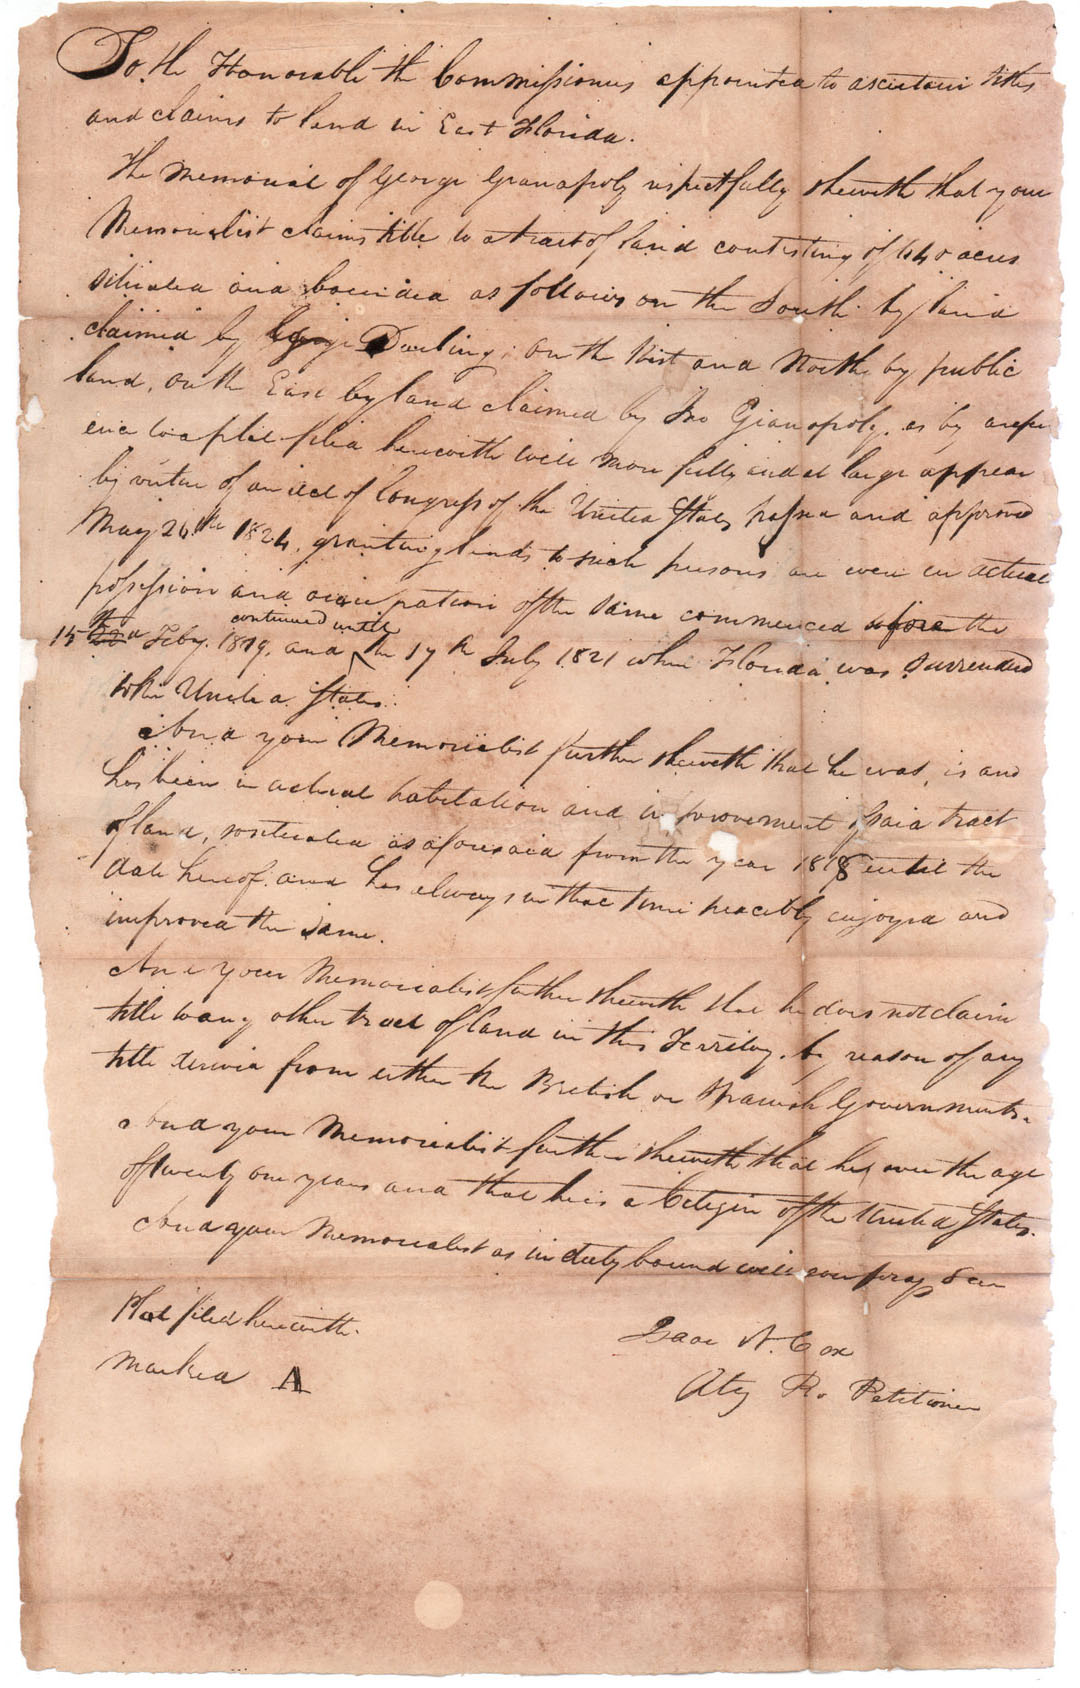 To the Honorable the Commissioners appointed to ascertain titles
and claims to land in East Florida.
The Memorial of George Gianopoly respectfully sheweth that your
Memorialist claims title to a tract of land containing 640 acres
situated and bounded as follows on the South by land
claimed by Darling; on the West and North by public
land, on the East by land claimed by Jno Gianopoly, as by a refer
ence to a plat filed herewith will more fully and at large appear
by virtue of an act of Congress of the United States passed and approved
May 26th 1824, granting lands to such persons as were in actual
possession and occupation of the same commenced before the
15 22d Feby. 1819, and continued until the 17th July 1821 when Florida was surrended
to the United States.
And your Memorialist further sheweth that he was, is and
has been in actual habitation and improvement of said tract
of land, situated as aforesaid from the year 1818 until the
date hereof. and has always in that time peacebly enjoyed and
improved the same.
And your Memorialist further sheweth that he does not claim
title to any other tract of land in this Territory, by reason of any
title derived from either the British or Spanish Governments.
And your Memorialist further sheweth that he is over the age
of twenty one years and that he is a Citizen of the United States.
And your Memorialist as in duty bound will ever pray &c
Plat filed herewith.
Marked A
Isaac N. Cox
Aty Pr. Petitioner